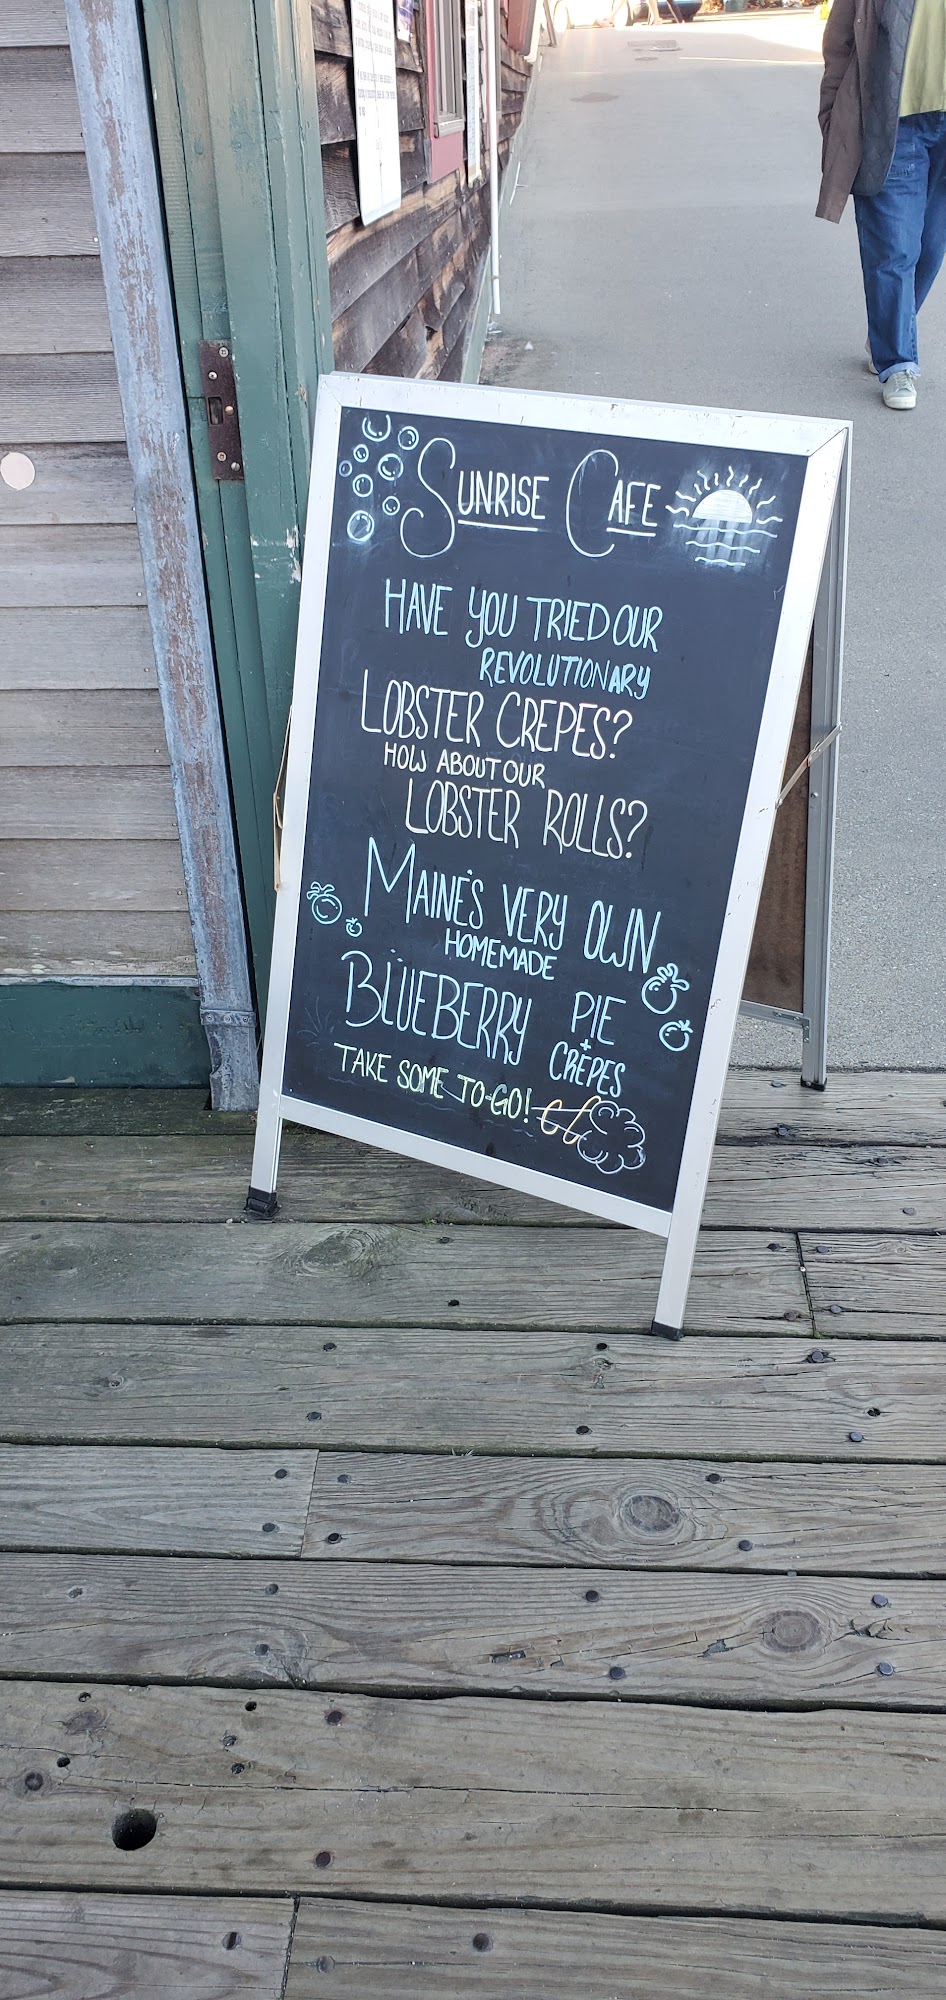 SUNRISE CAFE
HAVE YOU TRIED OUR
REVOLUTIONARY
LOBSTER CREPES?
HOW ABOUT OUR
LOBSTER ROLLS?
MAINE'S VERY OWN
HOMEMADE
BLUEBERRY PIE
+
CRÊPES
TAKE SOME TO-GO!